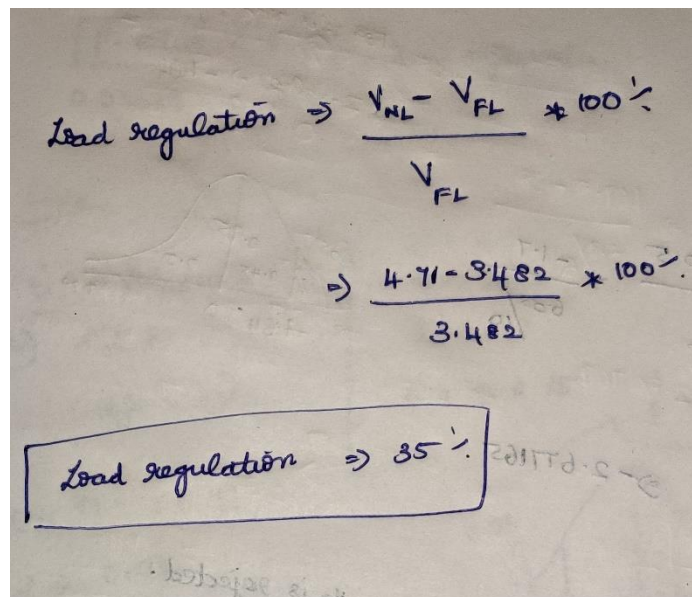 Load regulation ⇒ V_NL - V_FL / V_FL * 100 %
⇒ 4.71 - 3.482 / 3.482 * 100 %.
Load regulation ⇒ 35 %.